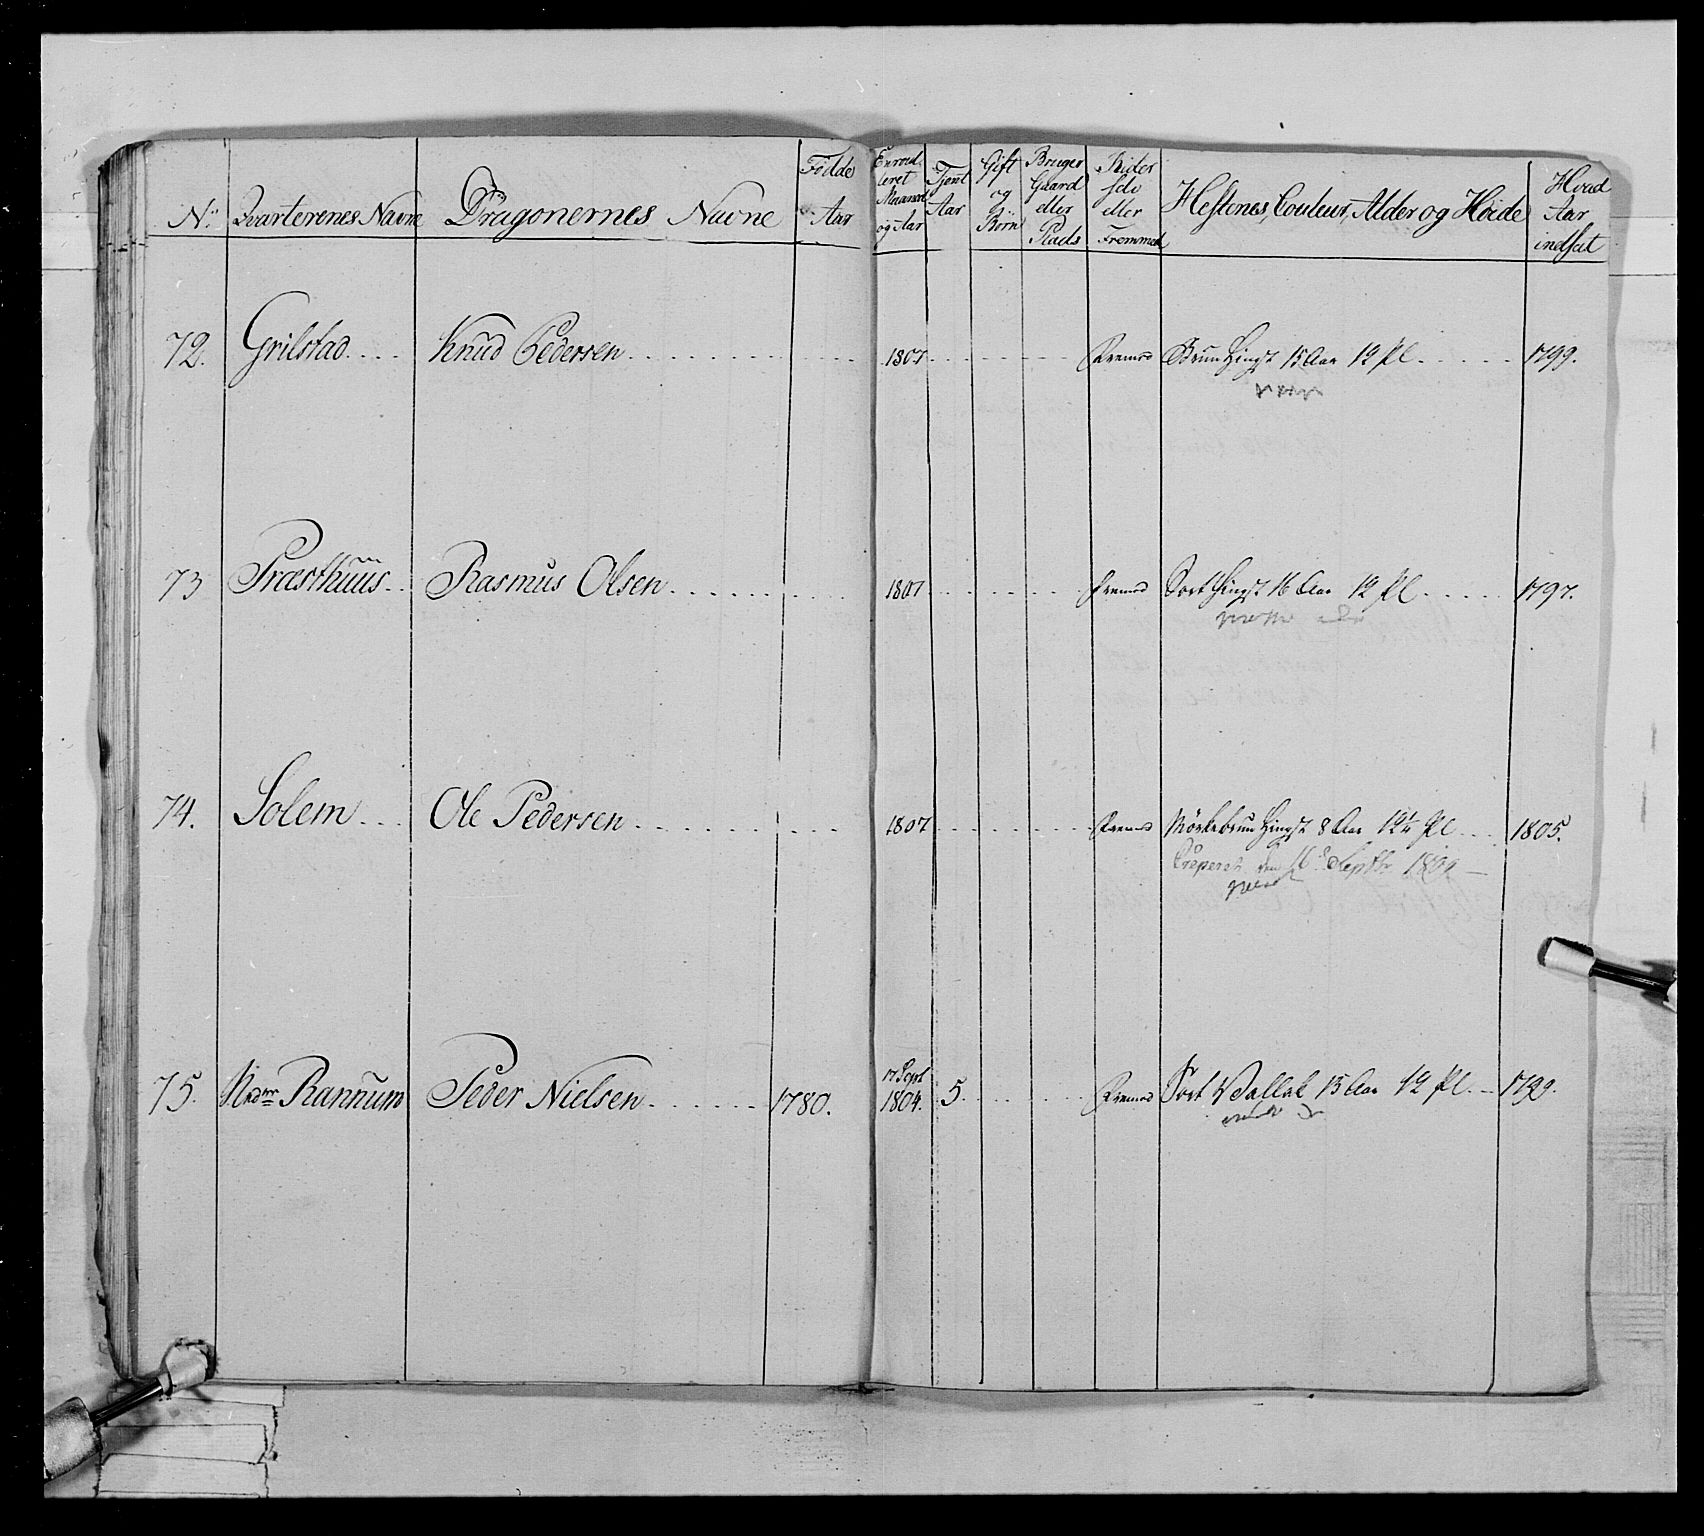 No. Qvarterenes Navne Dragonernes Navne Födde Aar Enroulleret Maaned og Aar Tjent Aar Gift og Børn Bruger Gaard eller Plads Rider selv eller Fremmed Hestenes, Couleur, Alder og Høide Hvad Aar indsat
72. Grilstad Knud Pedersen 1807 Fremed Bruun Hingst 15 Aar 12 Ql 1799.
73 Præsthuus Rasmus Olsen 1807 Fremed Sort Hingst 16 Aar 12 Ql 1797.
74. Solem Ole Pedersen 1807 Fremed Mörkebruun Hingst 8 Aar 12¼ Ql 1805.
Creperet den 16 Septbr 1809
75. Nedre Rannum Peder Nielsen 1780. 17 Sept 1804. 5. Fremed Sort Vallak 15 Aar 12 Ql 1799.